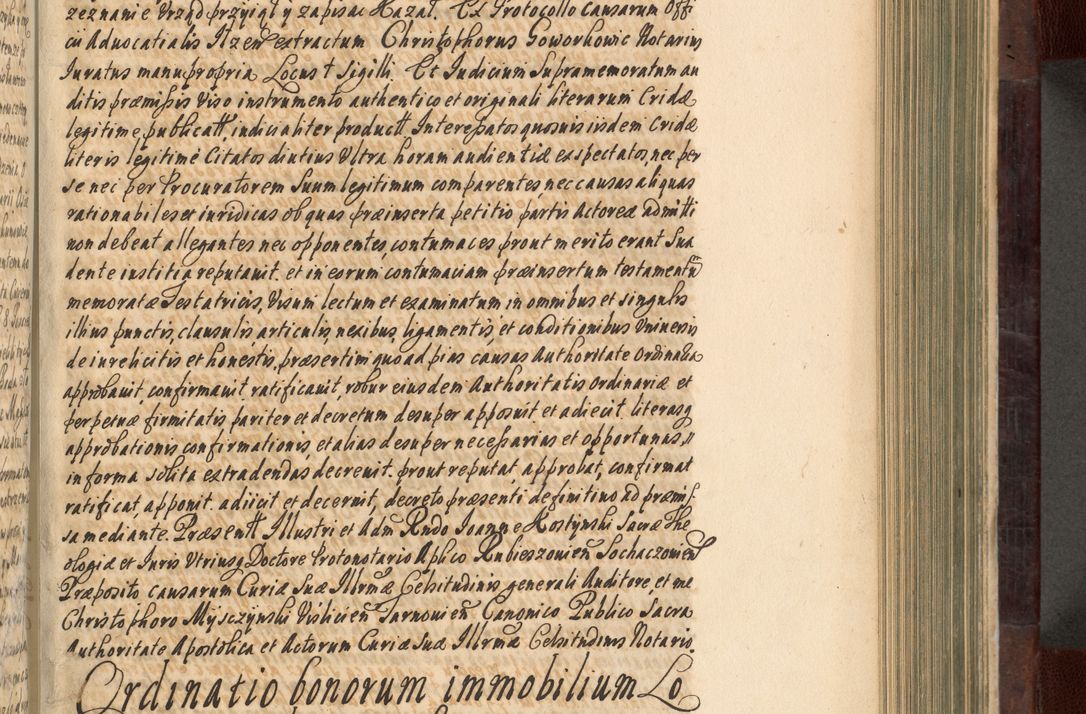 zeznanie Vrząd przyiął y zapisac Kazał. Ex Protocollo causarum Offi
cii Aduocatialis Itzeñ extractum Christophorus Goworkowic Notarius
Iuratus manu propria Locus † Sigilli. Et Iudicium Supramemoratum au
ditis præmissis Viso instrumento authentico et originali literarum Cridæ
legitime publicatt, iudicialiter productt Interessatos quosuis iisdem Cridæ
literis legitimè Citatos diutius Vltra horam audientiæ expectatos, nec per
se nec per Procuratorem Suum legitimum comparentes, nec causas aliquas
rationabiles et iuridicas ob quas præinserta petitio partis Actoreæ admitti
non debeat allegantes nec opponentes, contumaces prout merito erant Sua
dente iustitia reputauit. et in eorum contumaciam præinsertum testamentũ
memoratæ Testatricis, Visum lectum et examinatum in omnibus et singulis
illius punctis, clausulis articulis, nexibus, ligamentis, et conditionibus Vniuersis
de iure licitis et honestis, præsertim quo ad pias causas Authoritate Ordinaria
approbauit, confirmauit, ratificauit, robur eiusdem Authoritatis Ordinariæ et
perpetuæ firmitatis pariter et decretum desuper apposuit et adiecit literasq
approbationis confirmationis, et alias desuper necessarias et opportunas,
in forma solita extradendas decreuit. prout reputat, approbat, confirmat
ratificat, apponit, adiicit et decernit, decreto præsenti definitiuo ad præmis
sa mediante. Præsentt Illustri et Adm̃ Rndo Ioanne Hostynski Sacræ The
ologiæ et Iuris Vtriusq Doctore Protonotario Aplico Rubieszouieñ Sochaczouieñ
Præposito causarum Curiæ Suæ Illrmæ Celsitudinis generali Auditore, et me
Christophoro Mysczynski Vislicieñ Tarnouieñ Canonico Publico Sacra
Authoritate Apostolica et Actorum Curiæ Suæ Illrmæ Celsitudinis Notario.
Ordinatio bonorum immobilium Lo